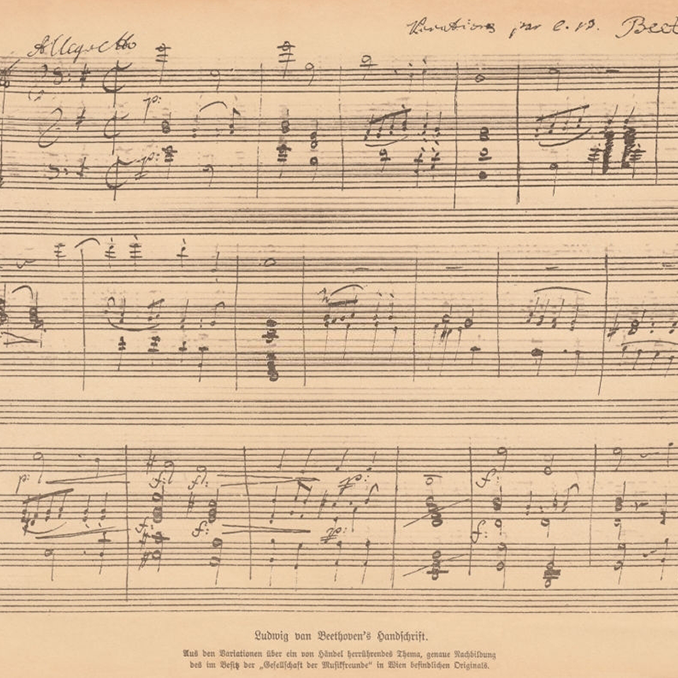 Allegretto
Variations par L. v. B. Beet
p:
p:
p:
f: f:
f: f:
p:
p:
f:
f:
Ludwig van Beethoven's Handschrift.
Aus den Variationen über ein von Händel herrührendes Thema, genaue Nachbildung
des im Besitz der „Gesellschaft der Musikfreunde“ in Wien befindlichen Originals.